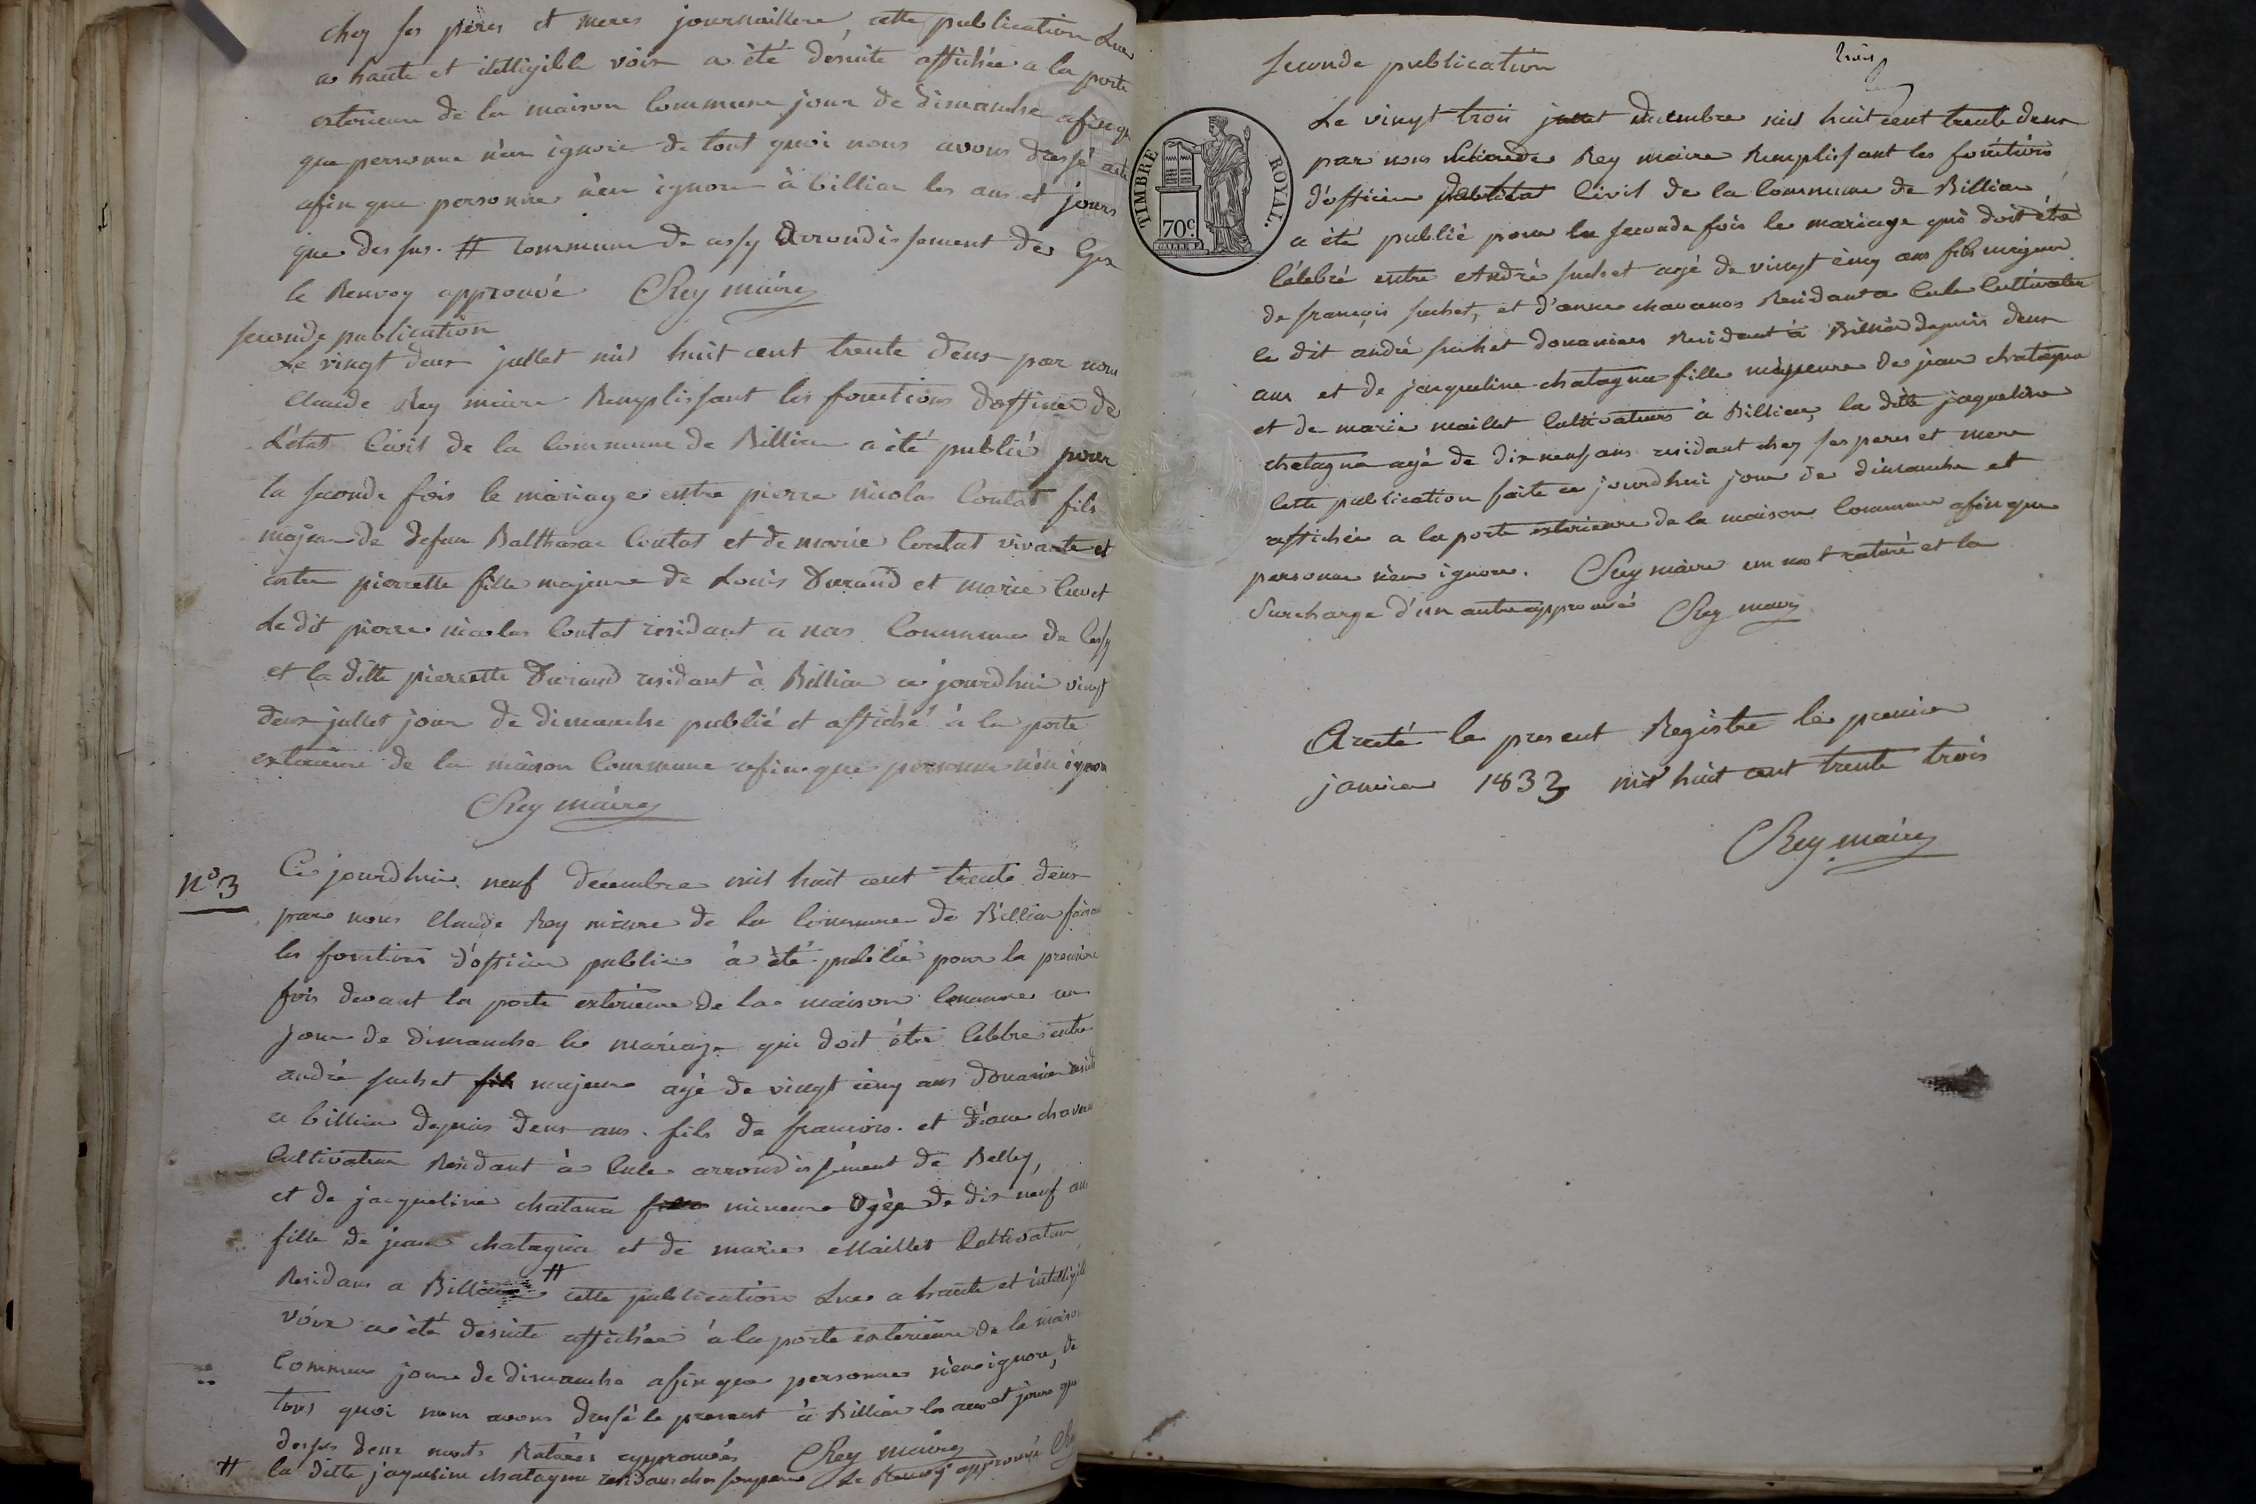 chez ses peres et meres journaillere cette publication Lue
a haute et itelligible voix a été desuite affichée a la porte
exterieure de la maison Commune jour de dimanche afin que
que personne n'en ignore de tout quoi nous avons dressé acte
afin que personne n'en ignore à billiat les ans et jours
que dessus. # Commune de Arrondissement de Gex
le Renvoy approuvé CRey maire
seconde publication
Le vingt deux jullet mil huit cent trente deux par nous
Claude Rey maire Remplissant les fonctions d'officier de
L'état Civil de la Commune de Billiat a été publié pour
la seconde fois le mariage entre pierre nicolas Contat fils
majeur de defun Balthasar Contat et de marie Contat vivante et
entre pierrette fille majeure de Louis Durand et marie
Le dit pierre nicolas Contat residant a Commune de
et la ditte pierrette Durand residant à Billiat ce jourdhui vingt
deux jullet jour de dimanche publié et affiché à la porte
exterieure de la maison Commune afin que personne n'en ignore
CRey maire
N° 3
Ce jourdhui neuf decembre mil huit cent trente deux
par nous Claude Rey maire de la Commune de Billiat faisant
les fonctions d'officier public à été publié pour la premiere
fois devant la porte exterieure de la maison Commune un
jour de dimanche le mariage qui doit être Celebre entre
andré suchet fils majeure agé de vingt cinq ans douanier resid
a billiat depuis deux ans. fils de francois. et d'anne chavan
Cultivateur Residant à Cule arrondissement de Belley,
et de jacqueline chatana fille mineure agée de dix neuf ans
fille de jean chatagna et de marie Maillet Cultivateur
Residans a Billiat # cette publication Lue a haute et intelligible
voix a été desuite affichée à la porte exterieure de la maison
Commune jour de dimanche afin que personne n'en ignore, de
tous quoi nous avons dressé le present à Billiat les ans et jours que
dessus deux mots Raturés approuvés CRey maire
# la ditte jaqueline chatagna residans ches son pere Le Renvoy approuvé CRey
trois
TIMBRE ROYAL.
70c
seconde publication
Le vingt trois jullet decembre mil huit cent trente deux
par nous Claude Rey maire Remplissant les fonctions
d'officier Civil de la Commune de Billiat
a été publié pour la seconde fois le mariage qui doit être
Célébré entre André suchet agé de vingt cinq ans fils majeur
de françois suchet, et d'anne chavanos Residant a Cule Cultivateur
le dit andré suchet douanier Residant à Billiat depuis deux
ans et de jacqueline chatagna fille mineure de jean chatagna
et de marie maillet Cultivateurs à Billiat, la ditte jaqueline
chatagna agé de dix neuf ans residant chez ses peres et mere
Cette publication faite ce jourdhui jour de dimanche et
affichée a la porte exterieure de la maison Commune afin que
personne n'en ignore. CRey maire un mot raturé et la
Surcharge d'un autre approuvés CRey maire
Areté le present Registre le premier
janvier 1833 mil huit cent trente trois
CRey maire